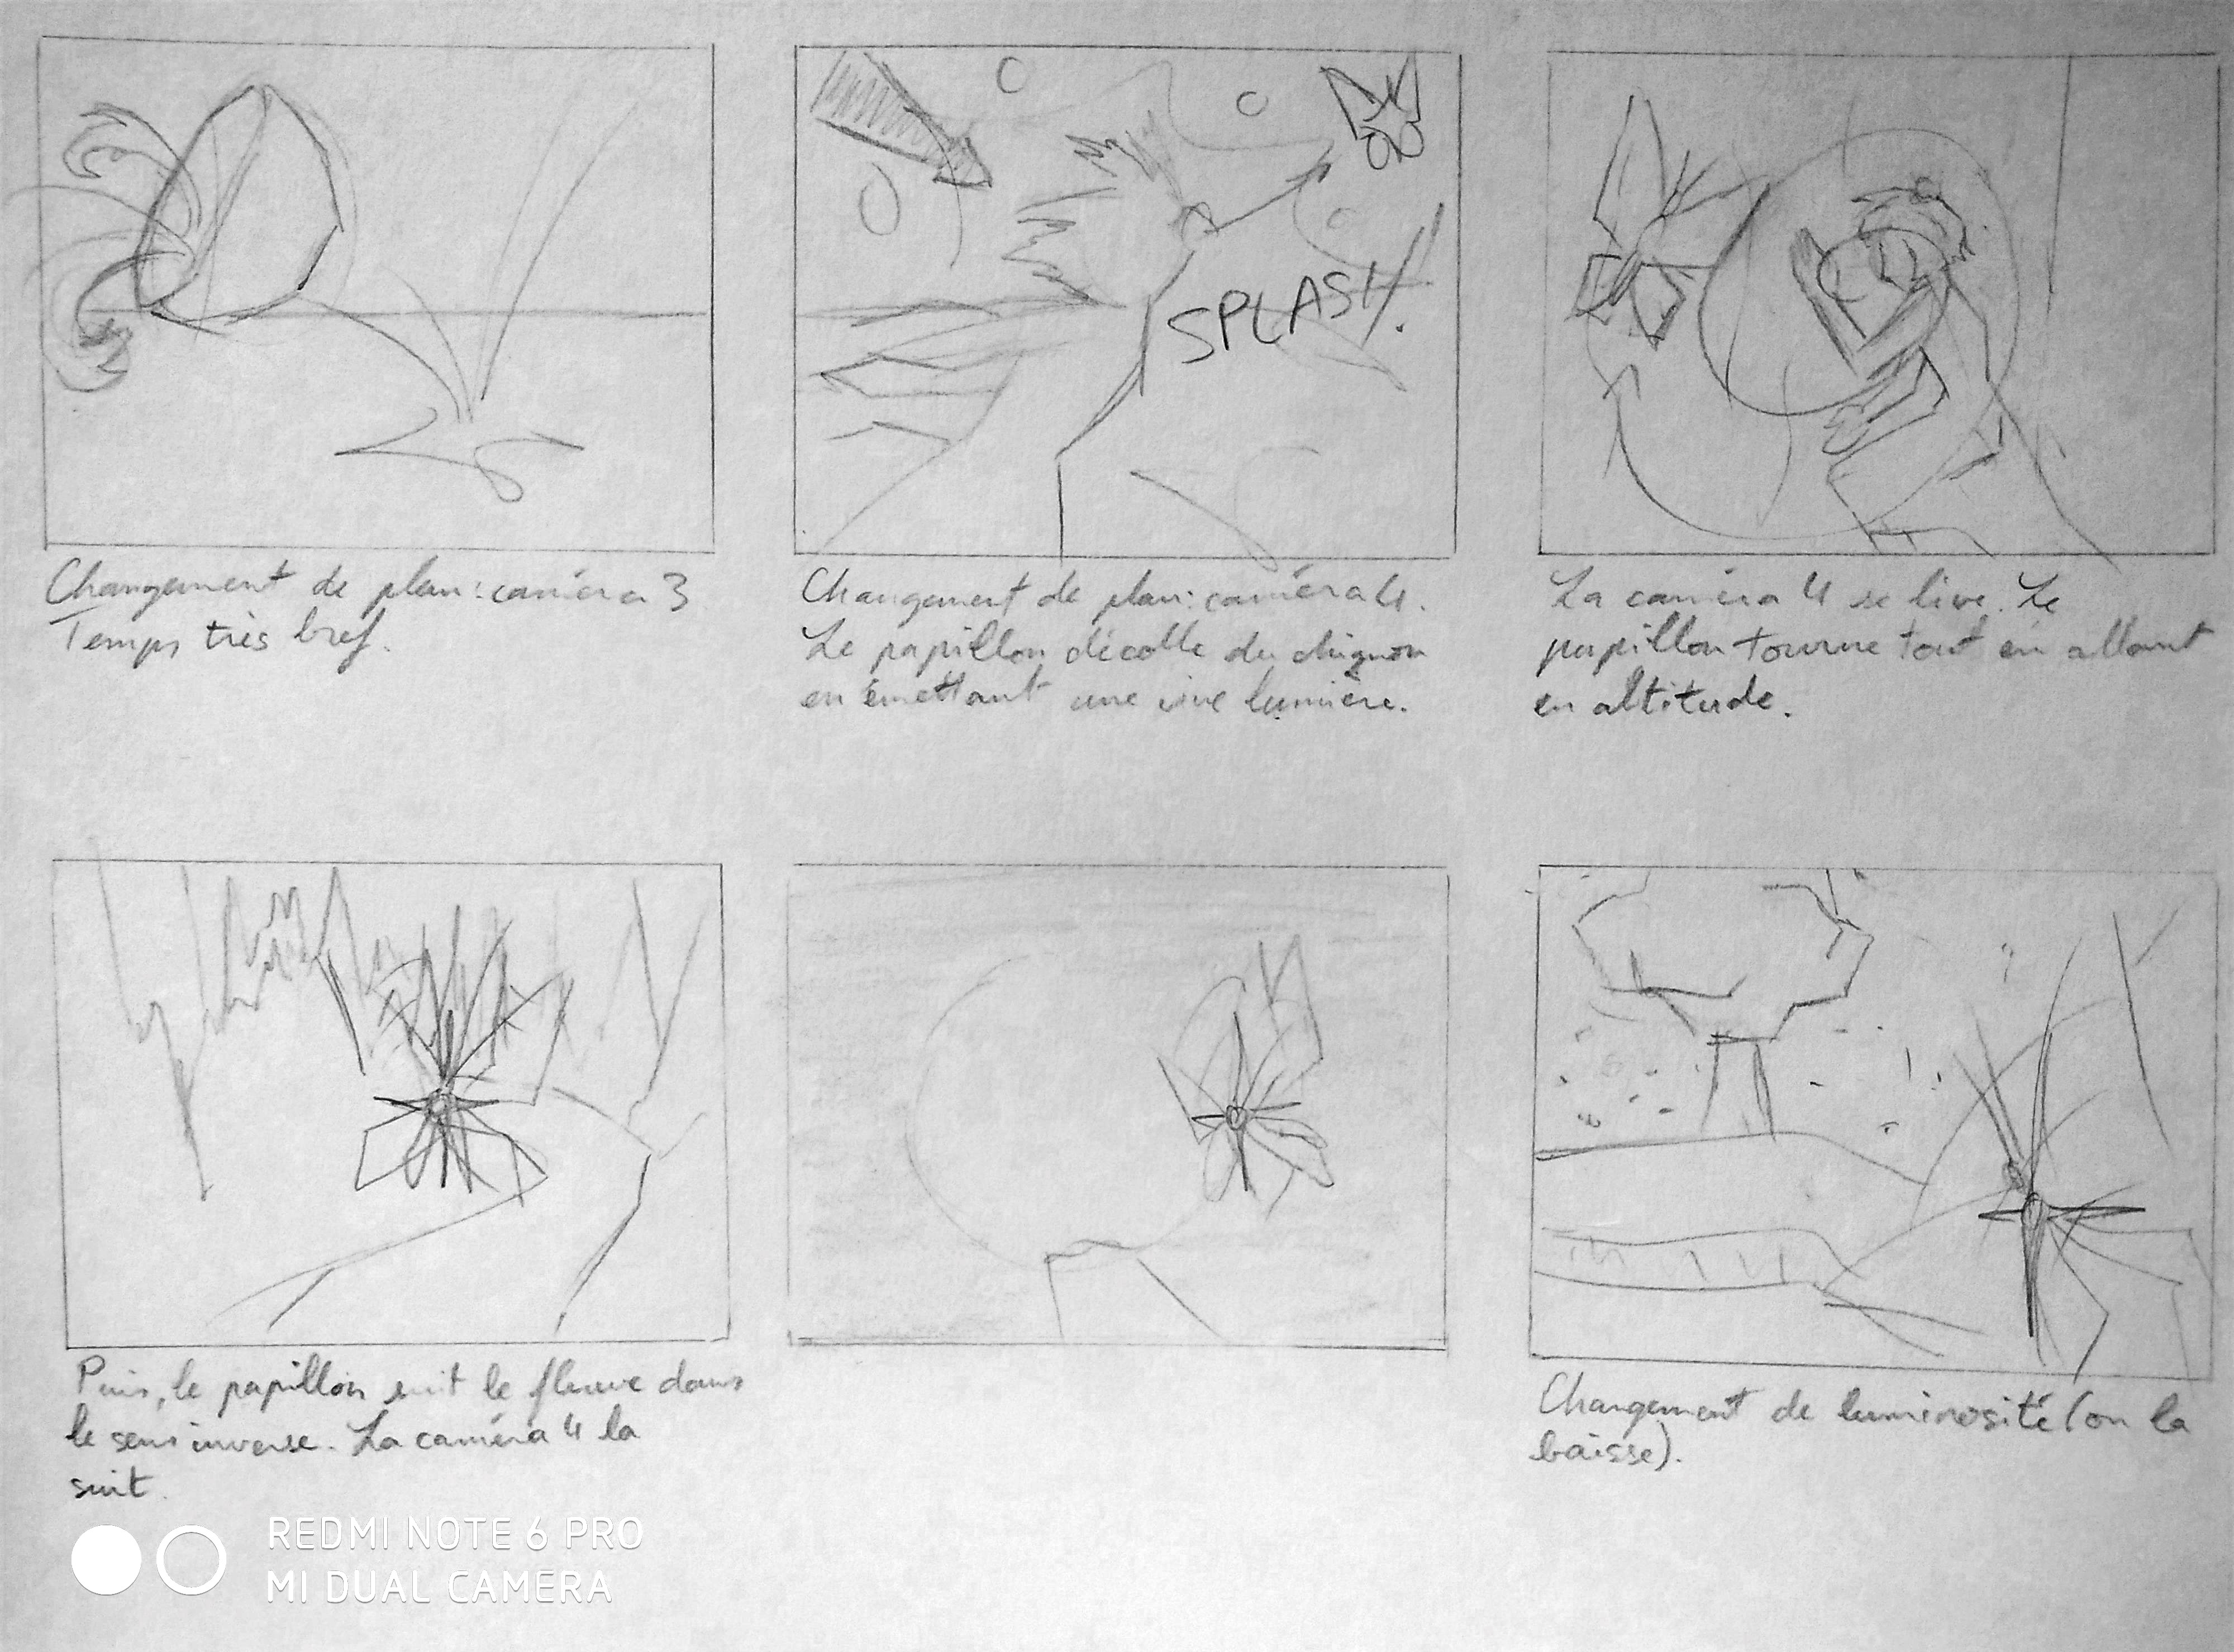 SPLASH!
Changement de plan: caméra 3
Temps très bref.
Changement de plan: caméra 4.
Le papillon décolle du chignon
en émettant une vive lumière.
La caméra 4 se live. Le
papillon tourne tout en allant
en altitude.
Puis, le papillon suit le fleuve dans
le sens inverse. La caméra 4 la
suit.
Changement de luminosité (on la
baisse).
REDMI NOTE 6 PRO
MI DUAL CAMERA